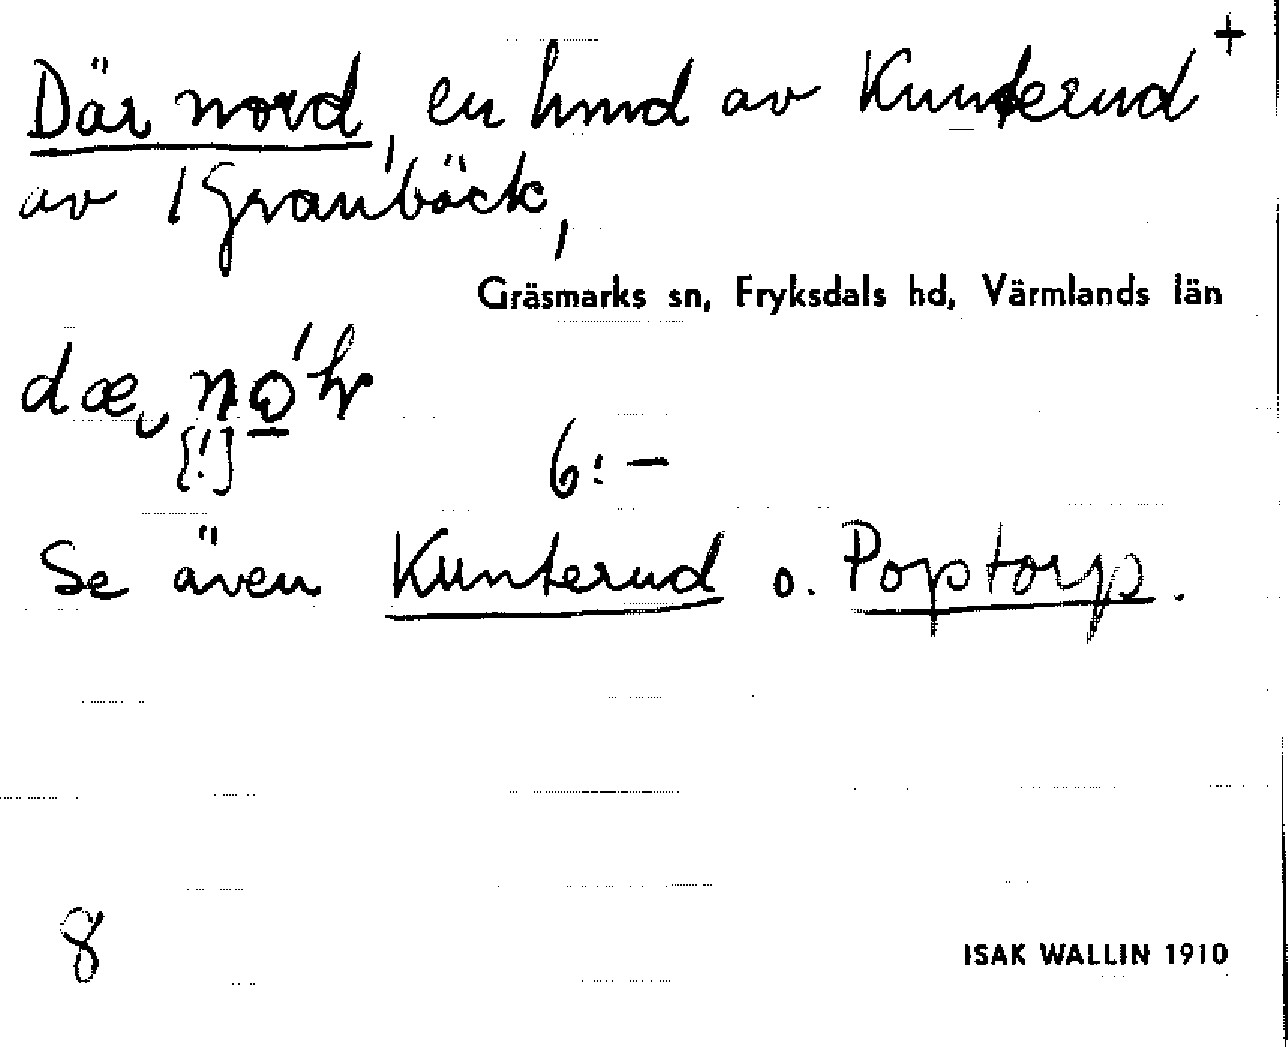 +
Där nord, en hmd av Kunterud
av 1 Granbäck,
Gräsmarks sn, Fryksdals hd, Värmlands län
dæ
[!]
6:-
Se även Kunterud o. Poptorp.
8
ISAK WALLIN 1910